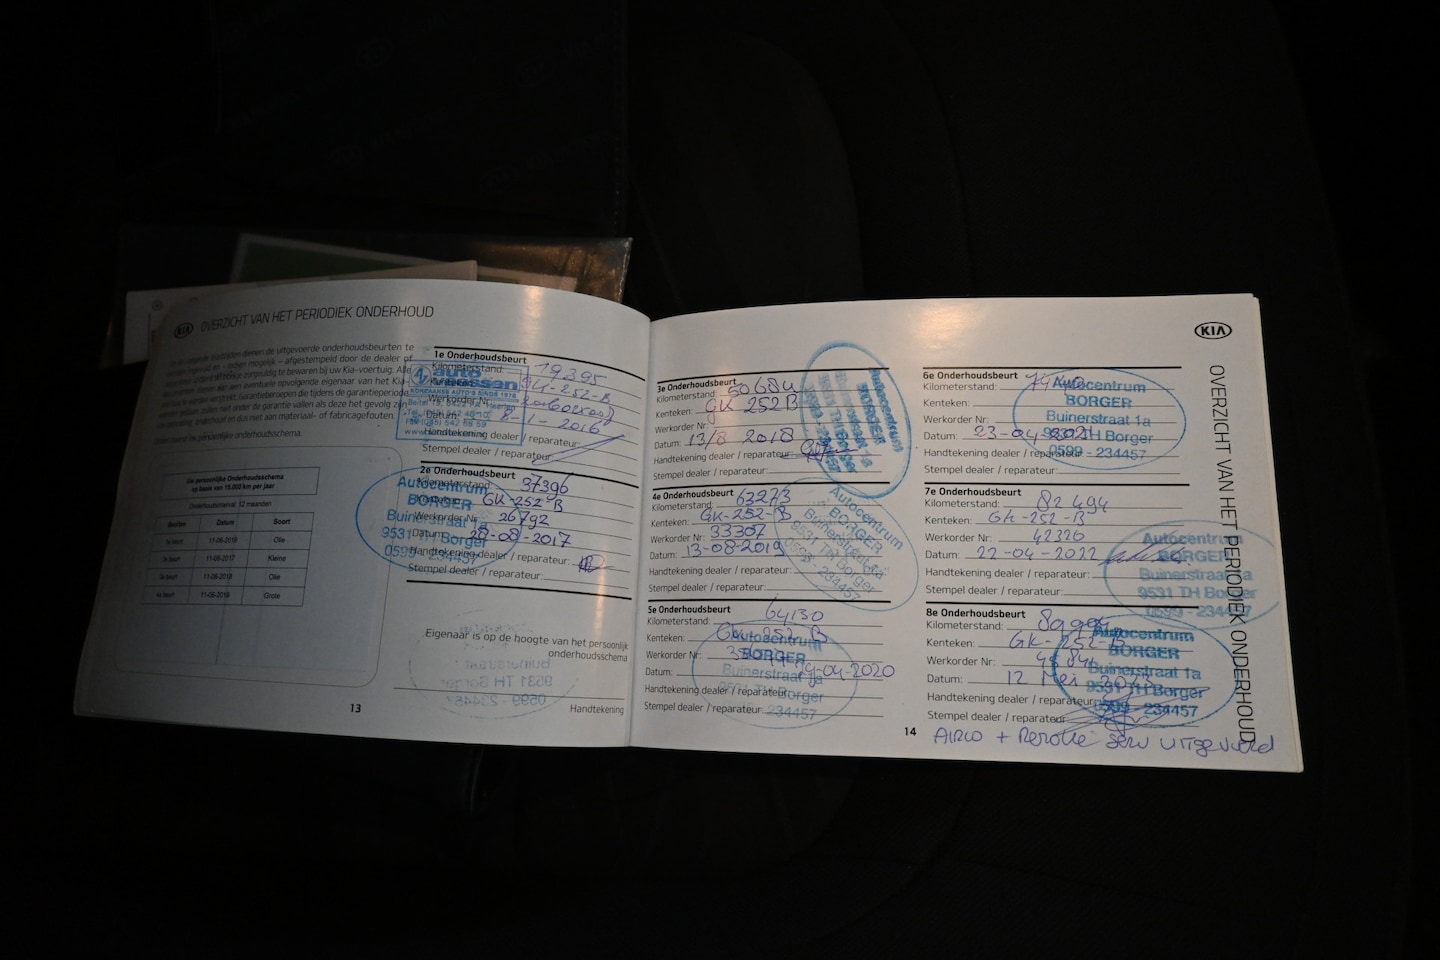 KIA OVERZICHT VAN HET PERIODIEK ONDERHOUD
dienen de uitgevoerde onderhoudsbeurten te
mogelijk - afgestempeld door de dealer of
zorgvuldig te bewaren bij uw Kia-voertuig.
eventuele opvolgende eigenaar van het Kia-
Garantieberoepen die tijdens de garantieperiode
zullen niet onder de garantie vallen als deze het gevolg zijn
onderhoud en dus niet aan materiaal- of fabricagefouten
persoonlijke onderhoudsschema
Uw persoonlijke Onderhoudsschema
op basis van 15.000 km per jaar
Onderhoudsinterval: 12 maanden
Beurten Datum Soort
1e beurt 11-06-2016 Olie
2e beurt 11-06-2017 Kleine
3e beurt 11-06-2018 Olie
4e beurt 11-06-2019 Grote
1e Onderhoudsbeurt
Kilometerstand: 19395
GK-252-B
Werkorder
Datum: 8-1-2016
Handtekening dealer / reparateur:
Stempel dealer / reparateur:
auto
2e Onderhoudsbeurt
Kilometerstand: 37396
Kenteken: GK-252-B
Werkorder Nr: 26792
Datum: 28-08-2017
Handtekening dealer / reparateur:
Stempel dealer / reparateur:
Autocentrum
BORGER
Buinerstraat 1a
9531 TH Borger
0599 - 234457
Eigenaar is op de hoogte van het persoonlijk
onderhoudsschema
Handtekening
13
3e Onderhoudsbeurt
Kilometerstand: 50684
Kenteken: GK 252 B
Werkorder Nr:
Datum: 13/8 2018
Handtekening dealer / reparateur:
Stempel dealer / reparateur:
Autocentrum
BORGER
Buinerstraat 1a
9531 TH Borger
4e Onderhoudsbeurt
Kilometerstand: 63273
Kenteken: GK-252-B
Werkorder Nr: 33307
Datum: 13-08-2019
Handtekening dealer / reparateur:
Stempel dealer / reparateur:
Autocentrum
BORGER
Buinerstraat 1a
9531 TH Borger
0599 - 234457
5e Onderhoudsbeurt
Kilometerstand: 64130
Kenteken: GK-252 B
Werkorder Nr:
Datum: -04-2020
Handtekening dealer / reparateur:
Stempel dealer / reparateur:
Autocentrum
BORGER
Buinerstraat 1a
9531 TH Borger
234457
14
KIA
OVERZICHT VAN HET PERIODIEK ONDERHOUD
6e Onderhoudsbeurt
Kilometerstand:
Kenteken:
Werkorder Nr:
Datum: 23-04-2021
Handtekening dealer / reparateur:
Stempel dealer / reparateur:
Autocentrum
BORGER
Buinerstraat 1a
9531 TH Borger
0599 - 234457
7e Onderhoudsbeurt
Kilometerstand: 82494
Kenteken: GK-252-B
Werkorder Nr: 42320
Datum: 22-04-2022
Handtekening dealer / reparateur:
Stempel dealer / reparateur:
Autocentrum
BORGER
Buinerstraat 1a
9531 TH Borger
0599 - 23445
8e Onderhoudsbeurt
Kilometerstand:
Kenteken: GK-252-B
Werkorder Nr:
Datum: 12 Mei
Handtekening dealer / reparateur:
Stempel dealer / reparateur:
Autocentrum
BORGER
Buinerstraat 1a
9531 TH Borger
0599 - 234457
AIRCO + Remolie serv uitgevoerd